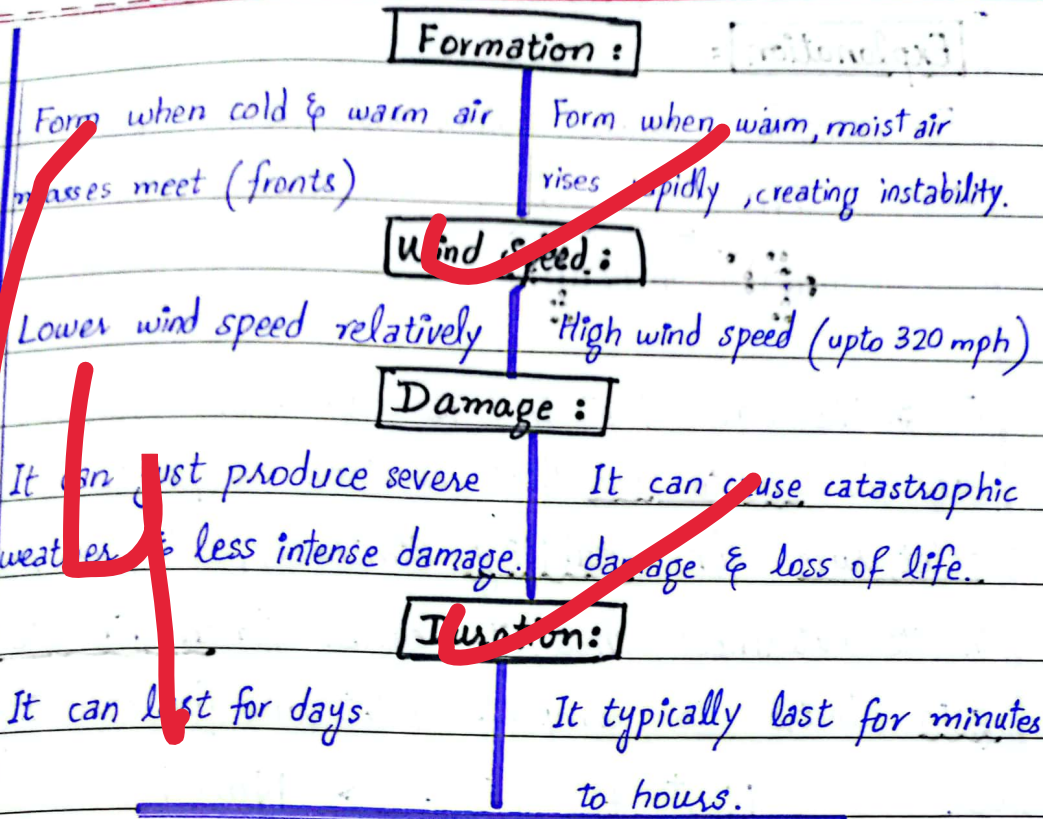 Formation :
Form when cold & warm air
masses meet (fronts)
Form when warm, moist air
rises rapidly, creating instability.
Wind speed :
Lower wind speed relatively
High wind speed (upto 320 mph)
Damage :
It can just produce severe
weather & less intense damage.
It can cause catastrophic
damage & loss of life.
Duration:
It can last for days
It typically last for minutes
to hours.
4